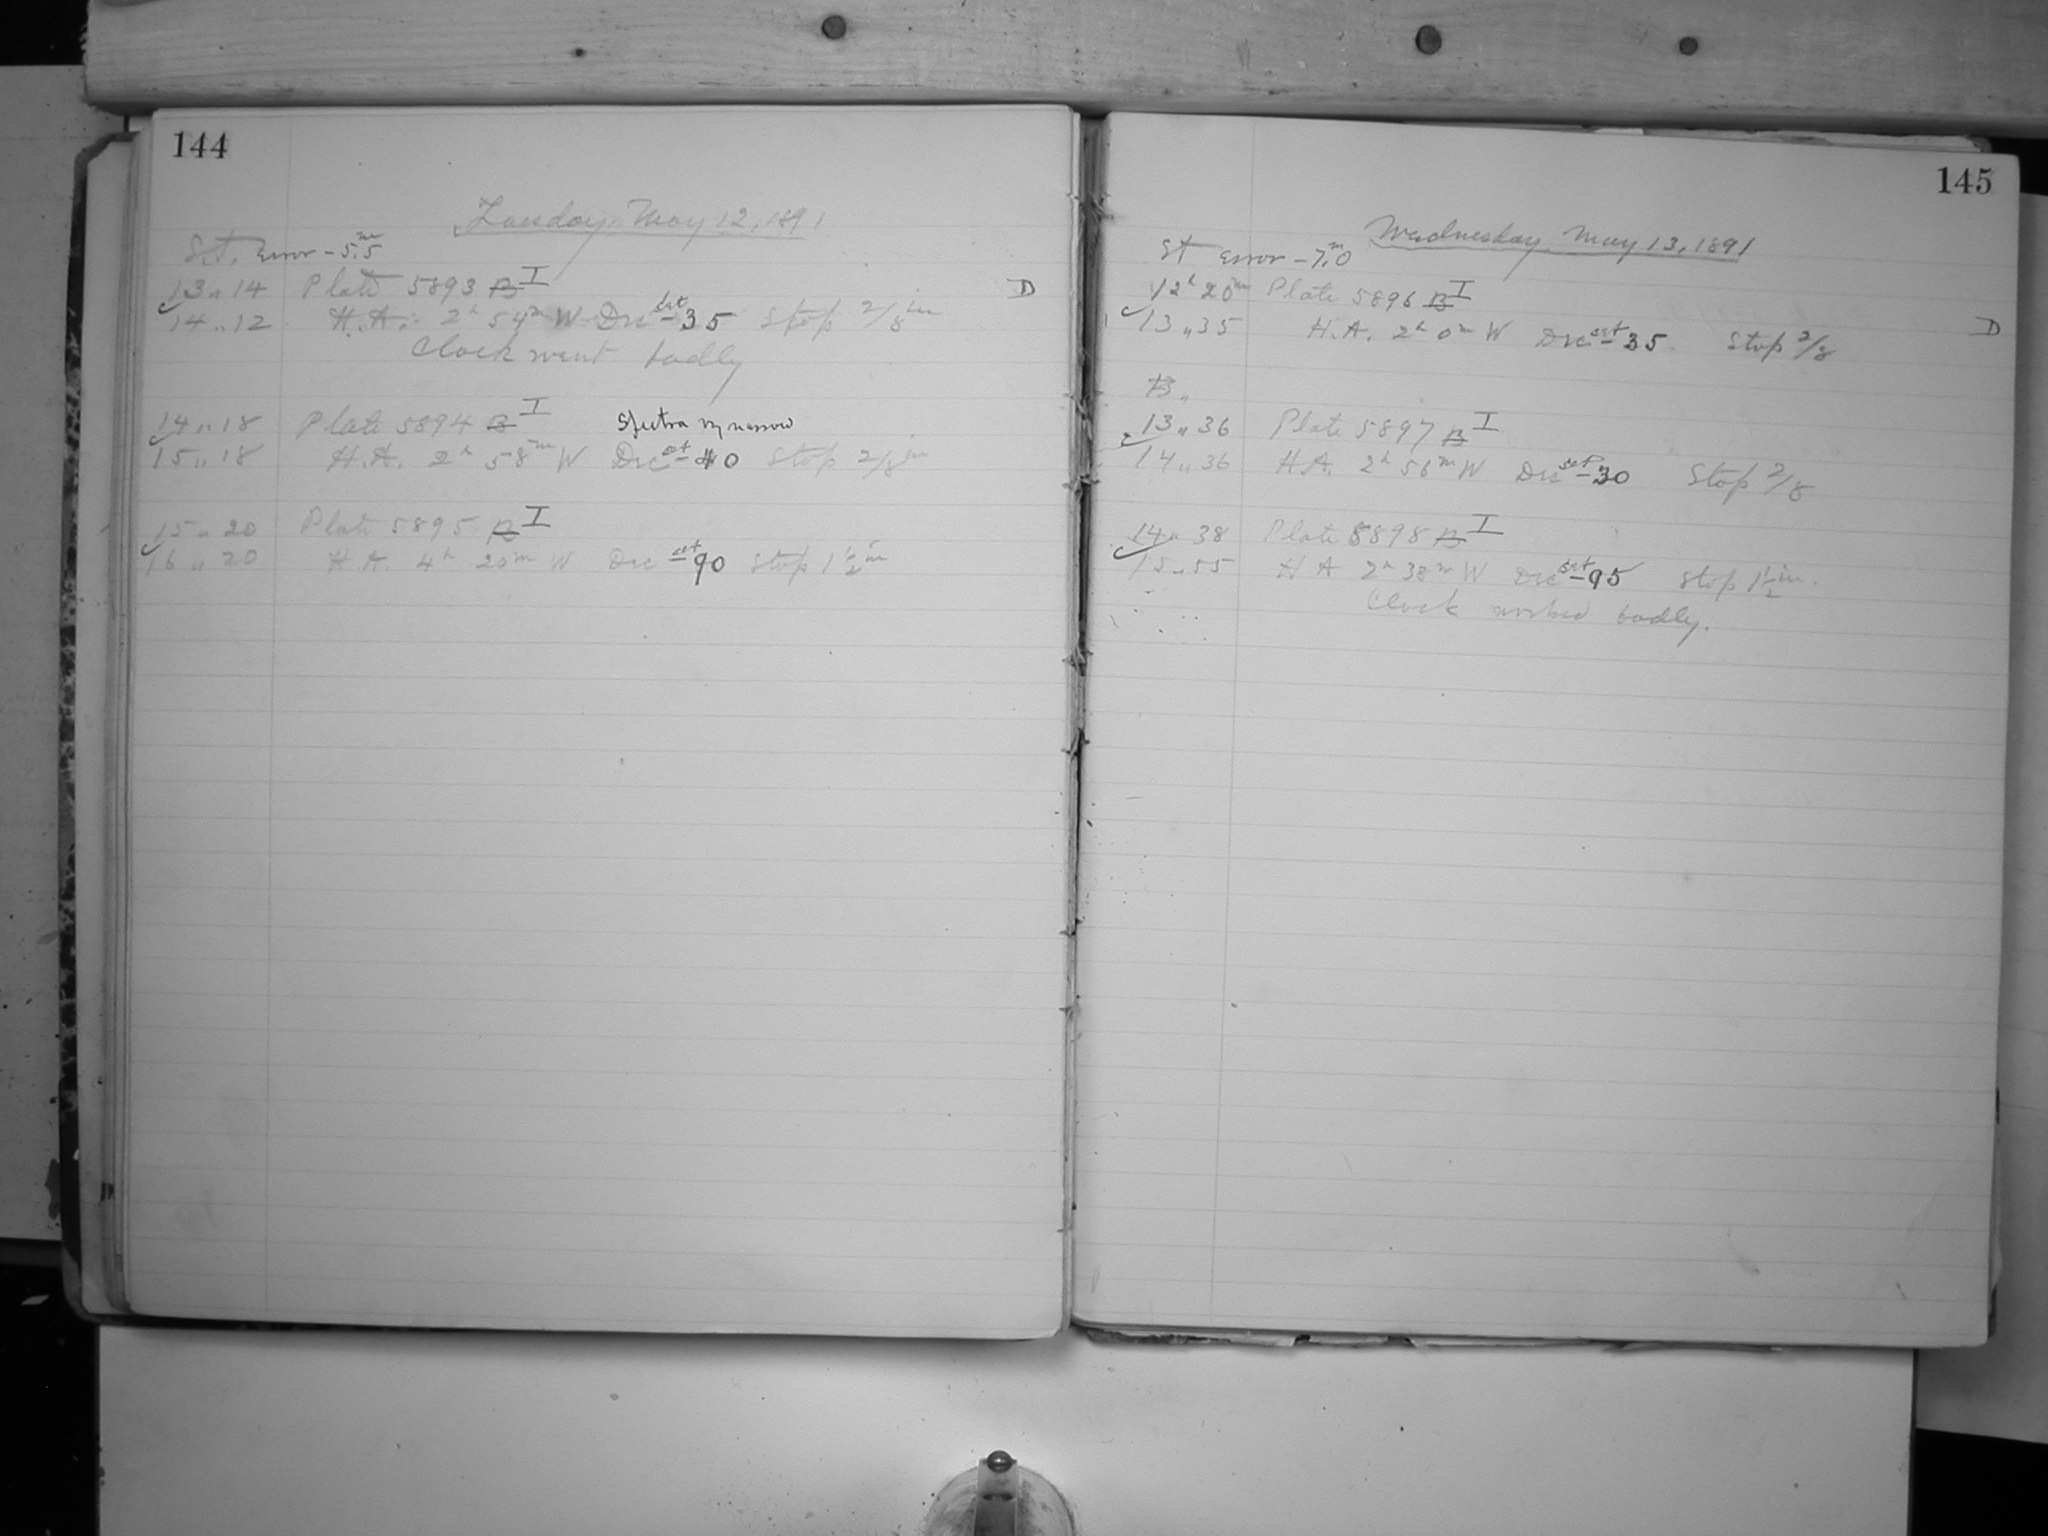 144
Tuesday, May 12, 1891
S.t. Error -5.5m
13 " 14 Plate 5893 B I D
14 " 12 H.A. 2h 54m W Dec set -35 Stop 2/8 in
Clock went badly
14 " 18 Plate 5894 B I Spectra v. narrow
15 " 18 H.A. 2h 58m W Dec set -40 Stop 2/8 in
15 " 20 Plate 5895 B I
16 " 20 H.A. 4h 20m W Dec set -90 Stop 1 1/2 in
145
Wednesday, May 13, 1891
St Error -7.0m
12h 20m Plate 5896 B I
13 " 35 H.A. 2h 0m W Dec set -35 Stop 2/8 D
B "
13 " 36 Plate 5897 B I
14 " 36 H.A. 2h 56m W Dec set -30 Stop 2/8
14 " 38 Plate 5898 B I
15 " 55 H A 2h 38m W Dec set -95 Stop 1 1/2 in.
Clock worked badly.